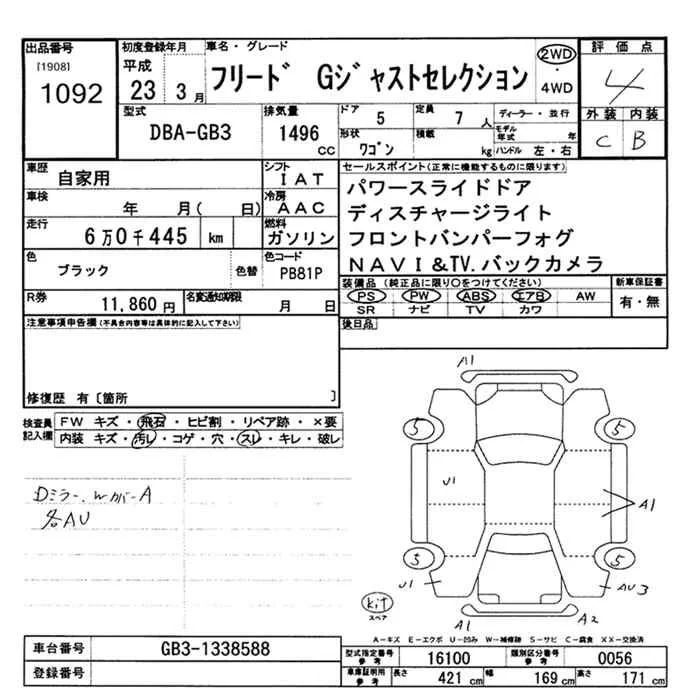 出品番号
[1908]
1092
初度登録年月
平成 23 3月
車名・グレード
フリード Gジャストセレクション
2WD
・
4WD
評価点
4
外装 内装
C B
型式
DBA-GB3
排気量
1496 cc
ドア
5
定員
7 人
ディーラー・並行
形状
ワゴン
積載
kg
モデル年式 年
ハンドル 左・右
車歴
自家用
シフト
IAT
車検
年 月( 日)
冷房
AAC
走行
6万0千445 km
燃料
ガソリン
色
ブラック
色替
色コード
PB81P
R券
11,860円
名変通知期限
月 日
セールスポイント(正常に機能するものに限ります)
パワースライドドア
ディスチャージライト
フロントバンパーフォグ
NAVI&TV.バックカメラ
装備品(純正品に限り○をつけてください)
PS PW ABS エアB AW
SR ナビ TV カワ
新車保証書
有・無
後日品
注意事項申告欄(不具合内容等は具体的に記入して下さい)
修復歴 有〔箇所 〕
検査員記入欄
FW キズ・飛石・ヒビ割・リペア跡・×要
内装 キズ・汚レ・コゲ・穴・スレ・キレ・破レ
Dミラー、Wカバー A
各AU
A1
5 5
U1
A1
5 5
U1
AU3
kit
スペア
A1
A2
A-キズ E-エクボ U-凹み W-補修跡 S-サビ C-腐食 XX-交換済
車台番号
GB3-1338588
登録番号
型式指定番号 参考
16100
類別区分番号 参考
0056
車庫証明用 参考
長さ 421cm 幅 169cm 高さ 171cm